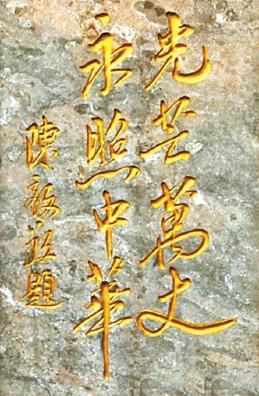 光芒萬丈
永照中華
陳毅敬題